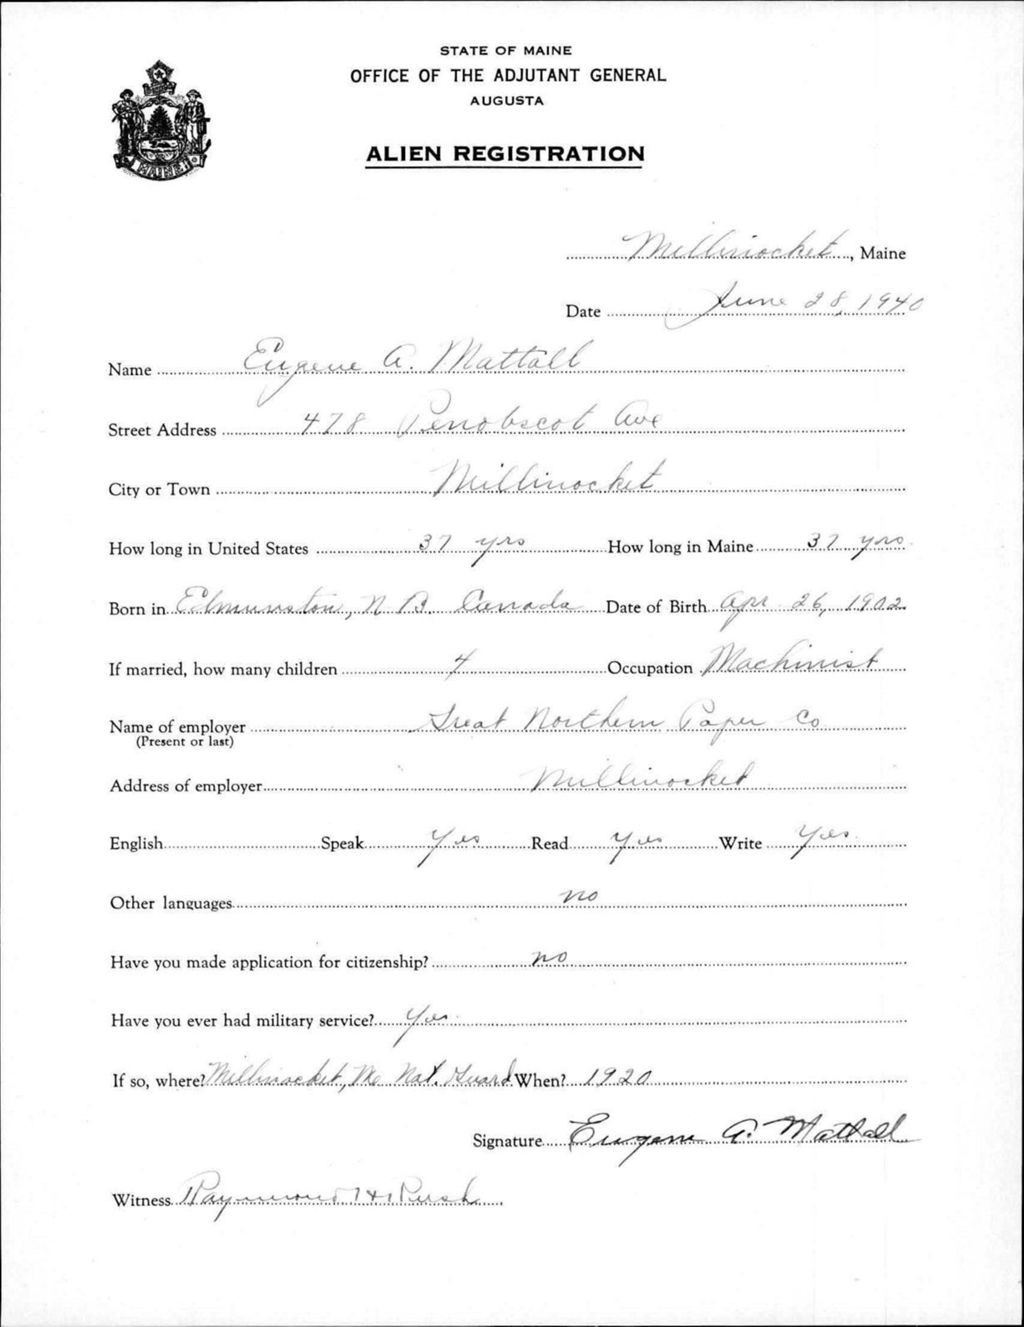 STATE OF MAINE
OFFICE OF THE ADJUTANT GENERAL
AUGUSTA
ALIEN REGISTRATION
MAINE
Millinocket, Maine
Date June 28, 1940
Name Eugene A. Mattall
Street Address 478 Penobscot Ave
City or Town Millinocket
How long in United States 37 yrs How long in Maine 37 yrs
Born in Edmunston, N B. Canada Date of Birth Apr 26, 1902
If married, how many children 4 Occupation Machinist
Name of employer Great Northern Paper Co
(Present or last)
Address of employer Millinocket
English Speak Yes Read Yes Write Yes
Other languages no
Have you made application for citizenship? no
Have you ever had military service? Yes
If so, where? Millinocket, Me Nat. Guard When? 1920
Signature Eugene A. Mattall
Witness Raymond H Rush